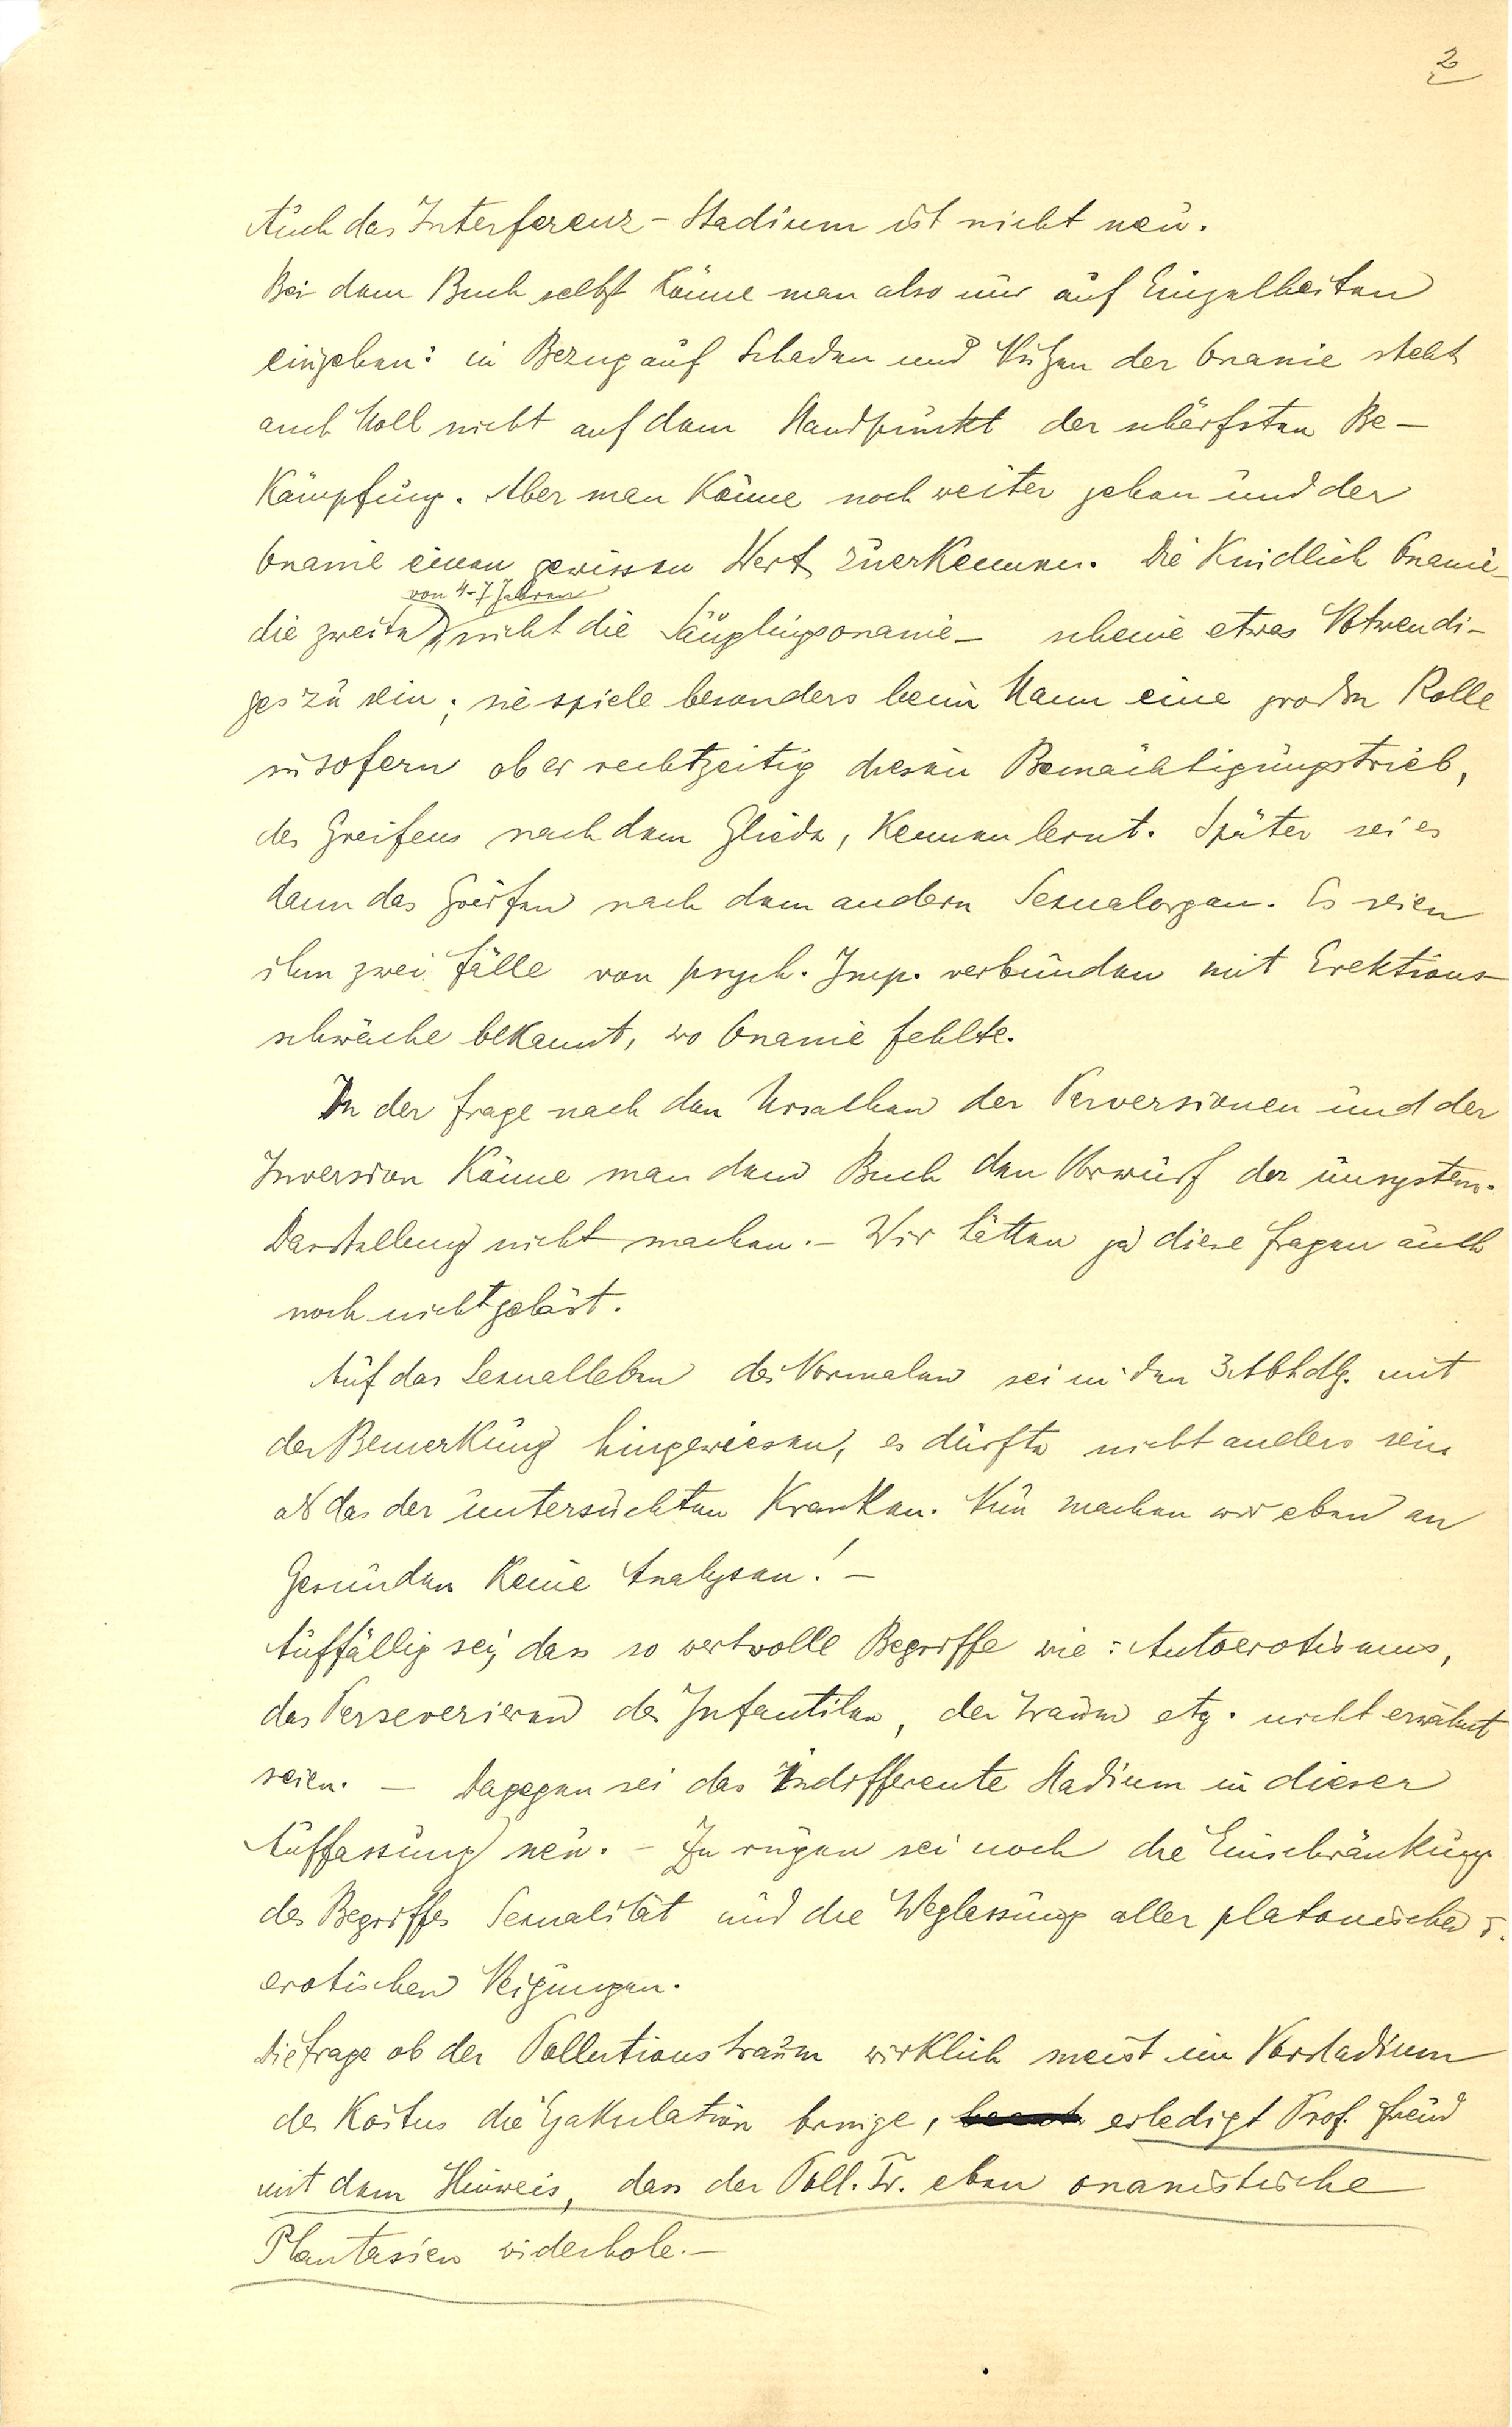 2
Auch das Interferenz-Stadium ist nicht neu.
Bei dem Buch selbst könne man also nur auf Einzelheiten
eingehen: in Bezug auf Schaden und Nutzen der Onanie steht
auch Moll nicht auf dem Standpunkt der schärfsten Be-
kämpfung. Aber man könne noch weiter gehen und der
Onanie einen gewissen Wert zuerkennen. Die Kindlich Onanie-
von 4-7 Jahren
die zweite, nicht die Säuglingsonanie- scheine etwas Notwendi-
ges zu sein; sie spiele besonders beim Mann eine großen Rolle
insofern ob er rechtzeitig diesen Bemächtigungstrieb,
des Greifens nach dem Gliede, kennen lernt. Später sei es
dann das Greifen nach dem andern Sexualorgan. Es seien
ihm zwei Fälle von psych. Imp. verbunden mit Erektions-
schwäche bekannt, wo Onanie fehlte.
In der Frage nach den Ursachen der Perversionen und der
Inversion könne man dem Buch den Vorwurf der unsystem.
Darstellung nicht machen.- Wir hätten ja diese Fragen auch
noch nicht gelöst.
Auf das Sexualleben des Normalen sei in den 3 Abhdlg. mit
der Bemerkung hingewiesen, es dürfte nicht anders sein
als das der untersuchten Kranken. Nun machen wir eben an
Gesunden keine Analysen! -
Auffällig sei, dass so wertvolle Begriffe wie: Autoerotismus,
das Perseverieren des Infantilen, der Traum etz. nicht erwähnt
seien. - Dagegen sei das indifferente Stadium in dieser
Auffassung neu. - Zu rügen sei noch die Einschränkung
des Begriffes Sexualität und die Weglassung aller platonischen u.
erotischen Neigungen.
Die Frage ob der Pollutionstraum wirklich meist im Vorstadium
des Koitus die Ejakulation bringe, erledigt Prof. Freud
mit dem Hinweis, dass der Poll. Tr. eben onanistische
Phantasien widerhole.-